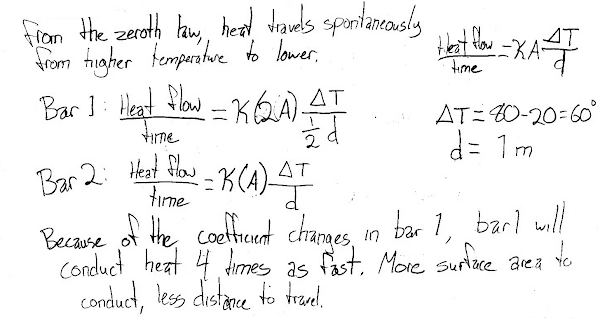 From the zeroth law, heat travels spontaneously
from higher temperature to lower.
Heat flow / time = KA ΔT / d
Bar 1: Heat flow / time = K(2A) ΔT / ½ d
ΔT = 80-20=60°
d = 1m
Bar 2: Heat flow / time = K(A) ΔT / d
Because of the coefficient changes in bar 1, bar 1 will
conduct heat 4 times as fast. More surface area to
conduct, less distance to travel.